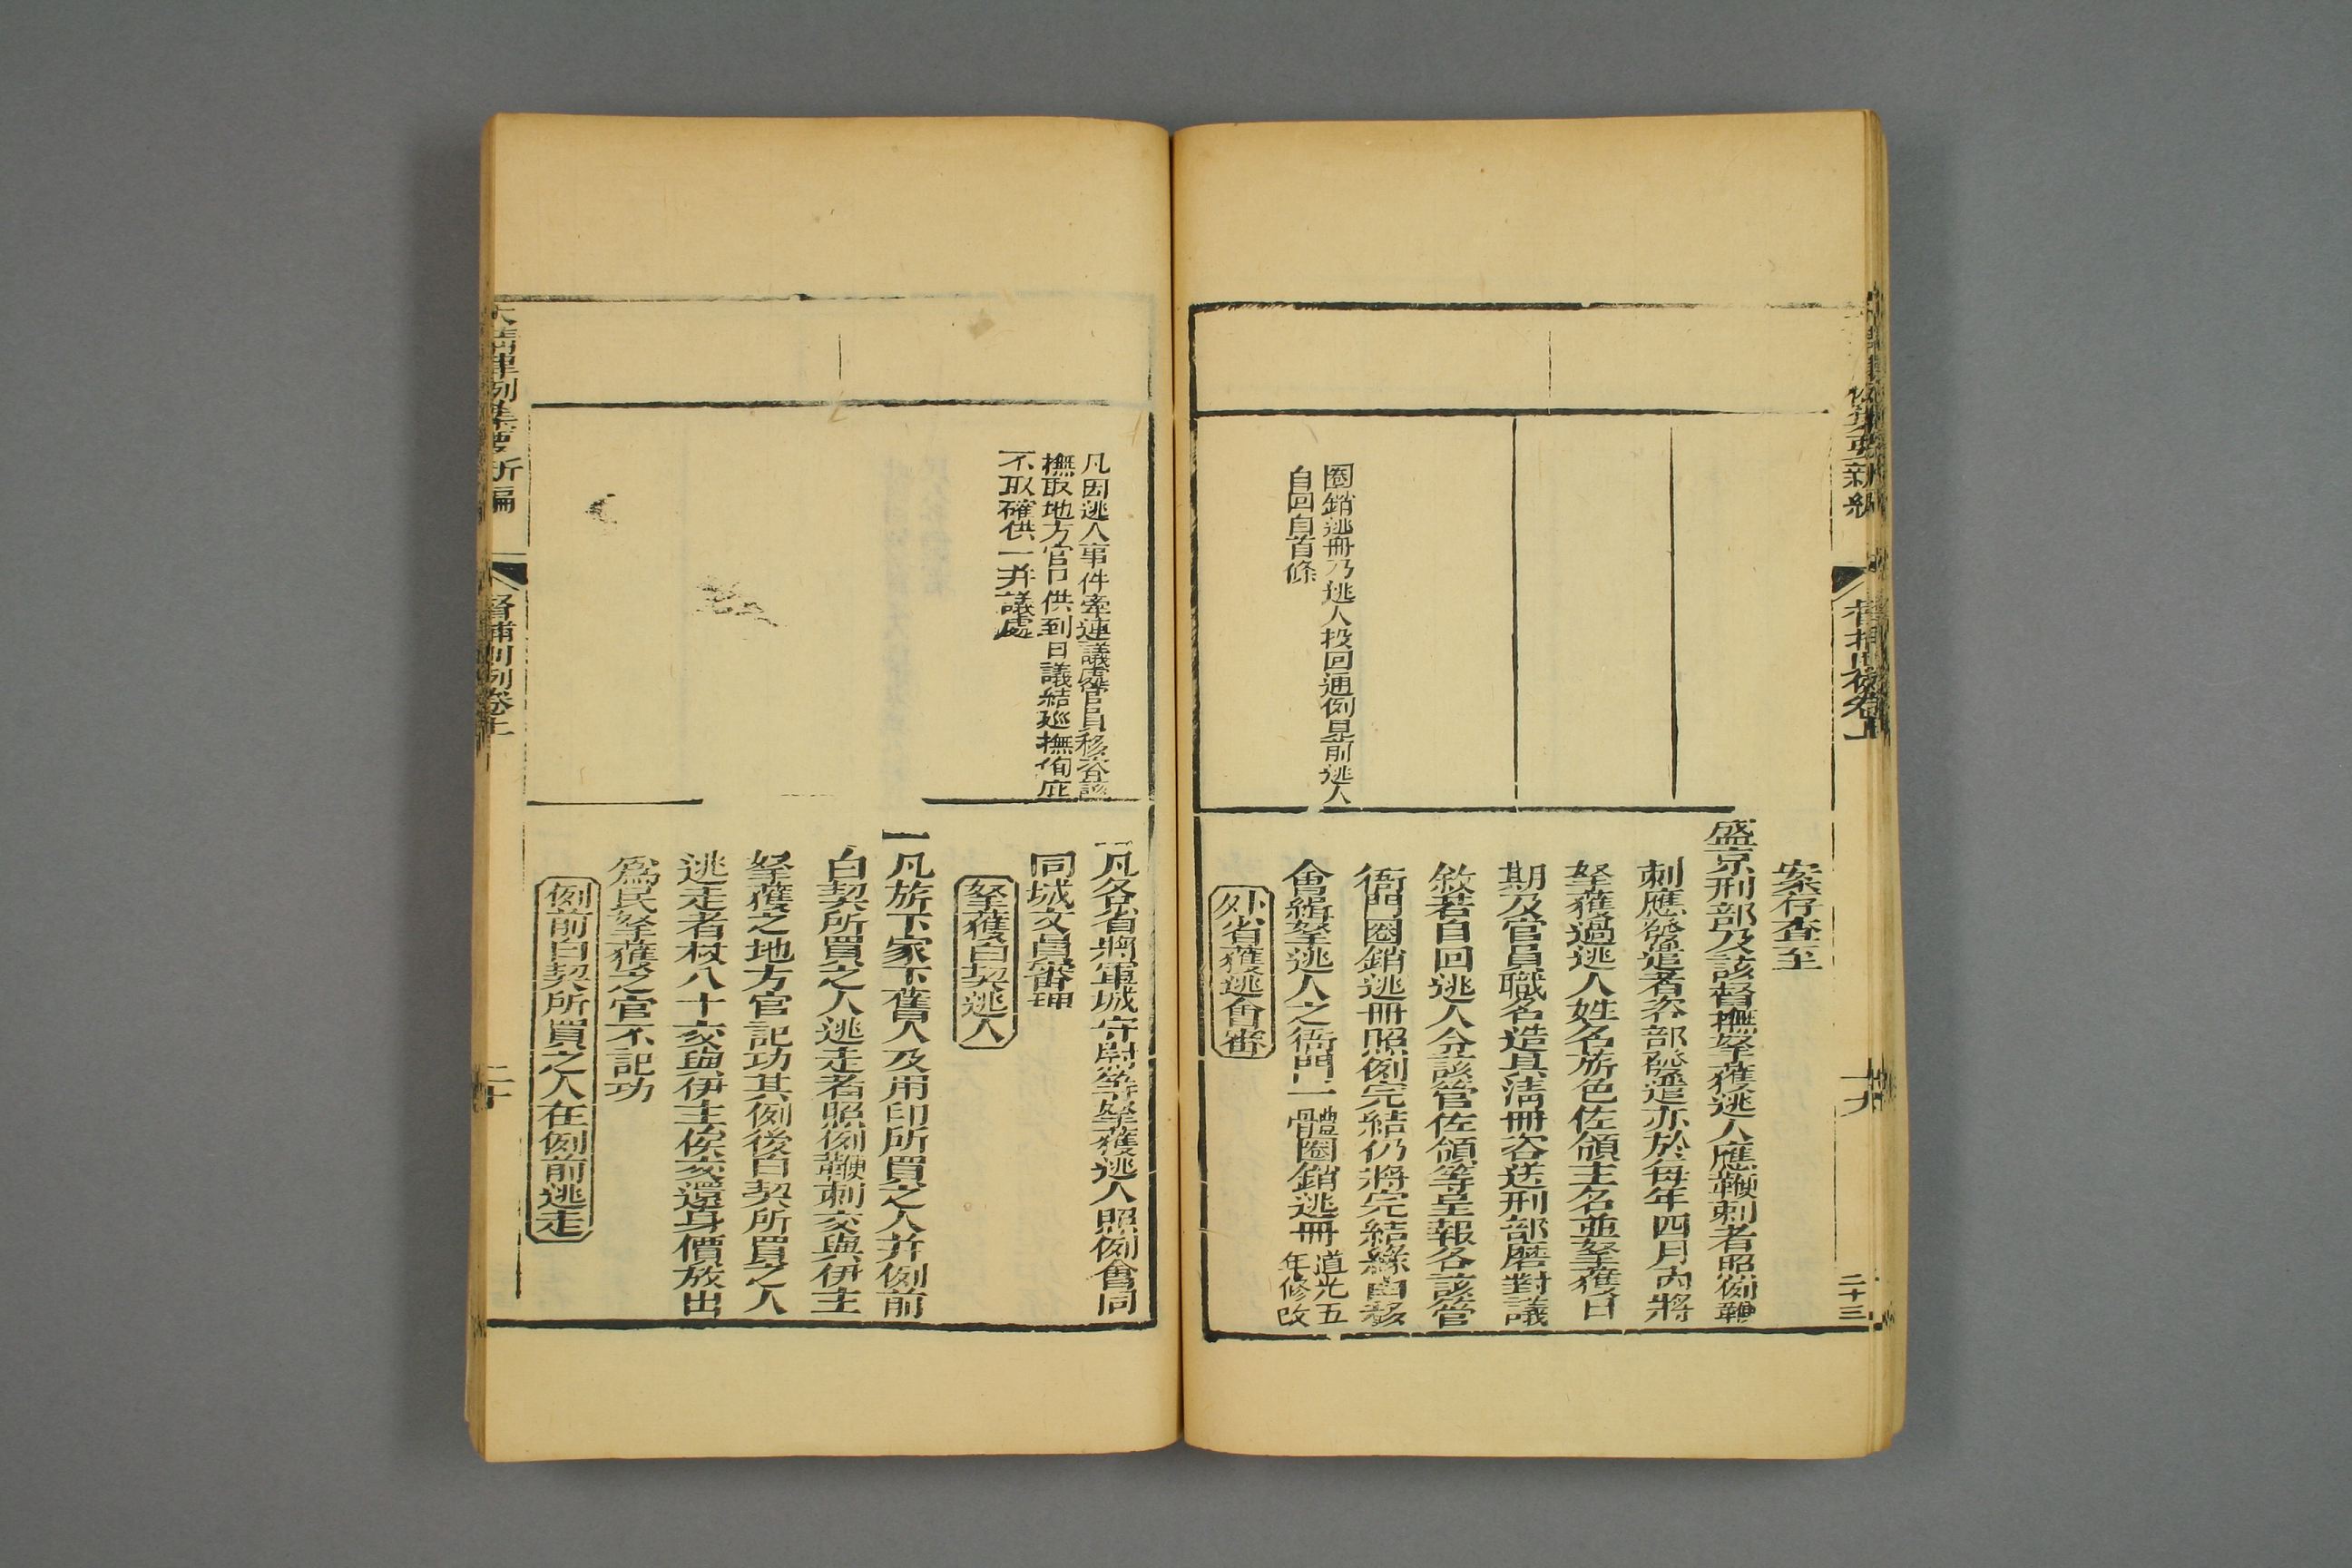 案存查至
盛京刑部及該督撫拏獲逃人應鞭刺者照例鞭
刺應發遣者咨部發遣亦於每年四月內將
拏獲過逃人姓名旂色佐領主名並拏獲日
期及官員職名造具清冊咨送刑部磨對議
敘若自回逃人令該管佐領等呈報各該管
衙門圈銷逃冊照例完結仍將完結緣由移
會緝拏逃人之衙門一體圈銷逃冊 道光五
年修改
外省獲逃會審
圈銷逃冊乃逃人投回通例見前逃人
自回自首條
十九
二十三
凡因逃人事件牽連議處官員移咨該
撫取地方官口供到日議結如巡撫徇庇
不取確供一并議處
一凡各省將軍城守尉等拏獲逃人照例會同
同城文員審理
拏獲白契逃人
一凡旂下家下舊人及用印所買之人并例前
白契所買之人逃走者照例鞭刺交與伊主
拏獲之地方官記功其例後白契所買之人
逃走者杖八十交與伊主俟交還身價放出
為民拏獲之官不記功
例前白契所買之人在例前逃走
大清律例集要新編
督捕則例卷上
二十